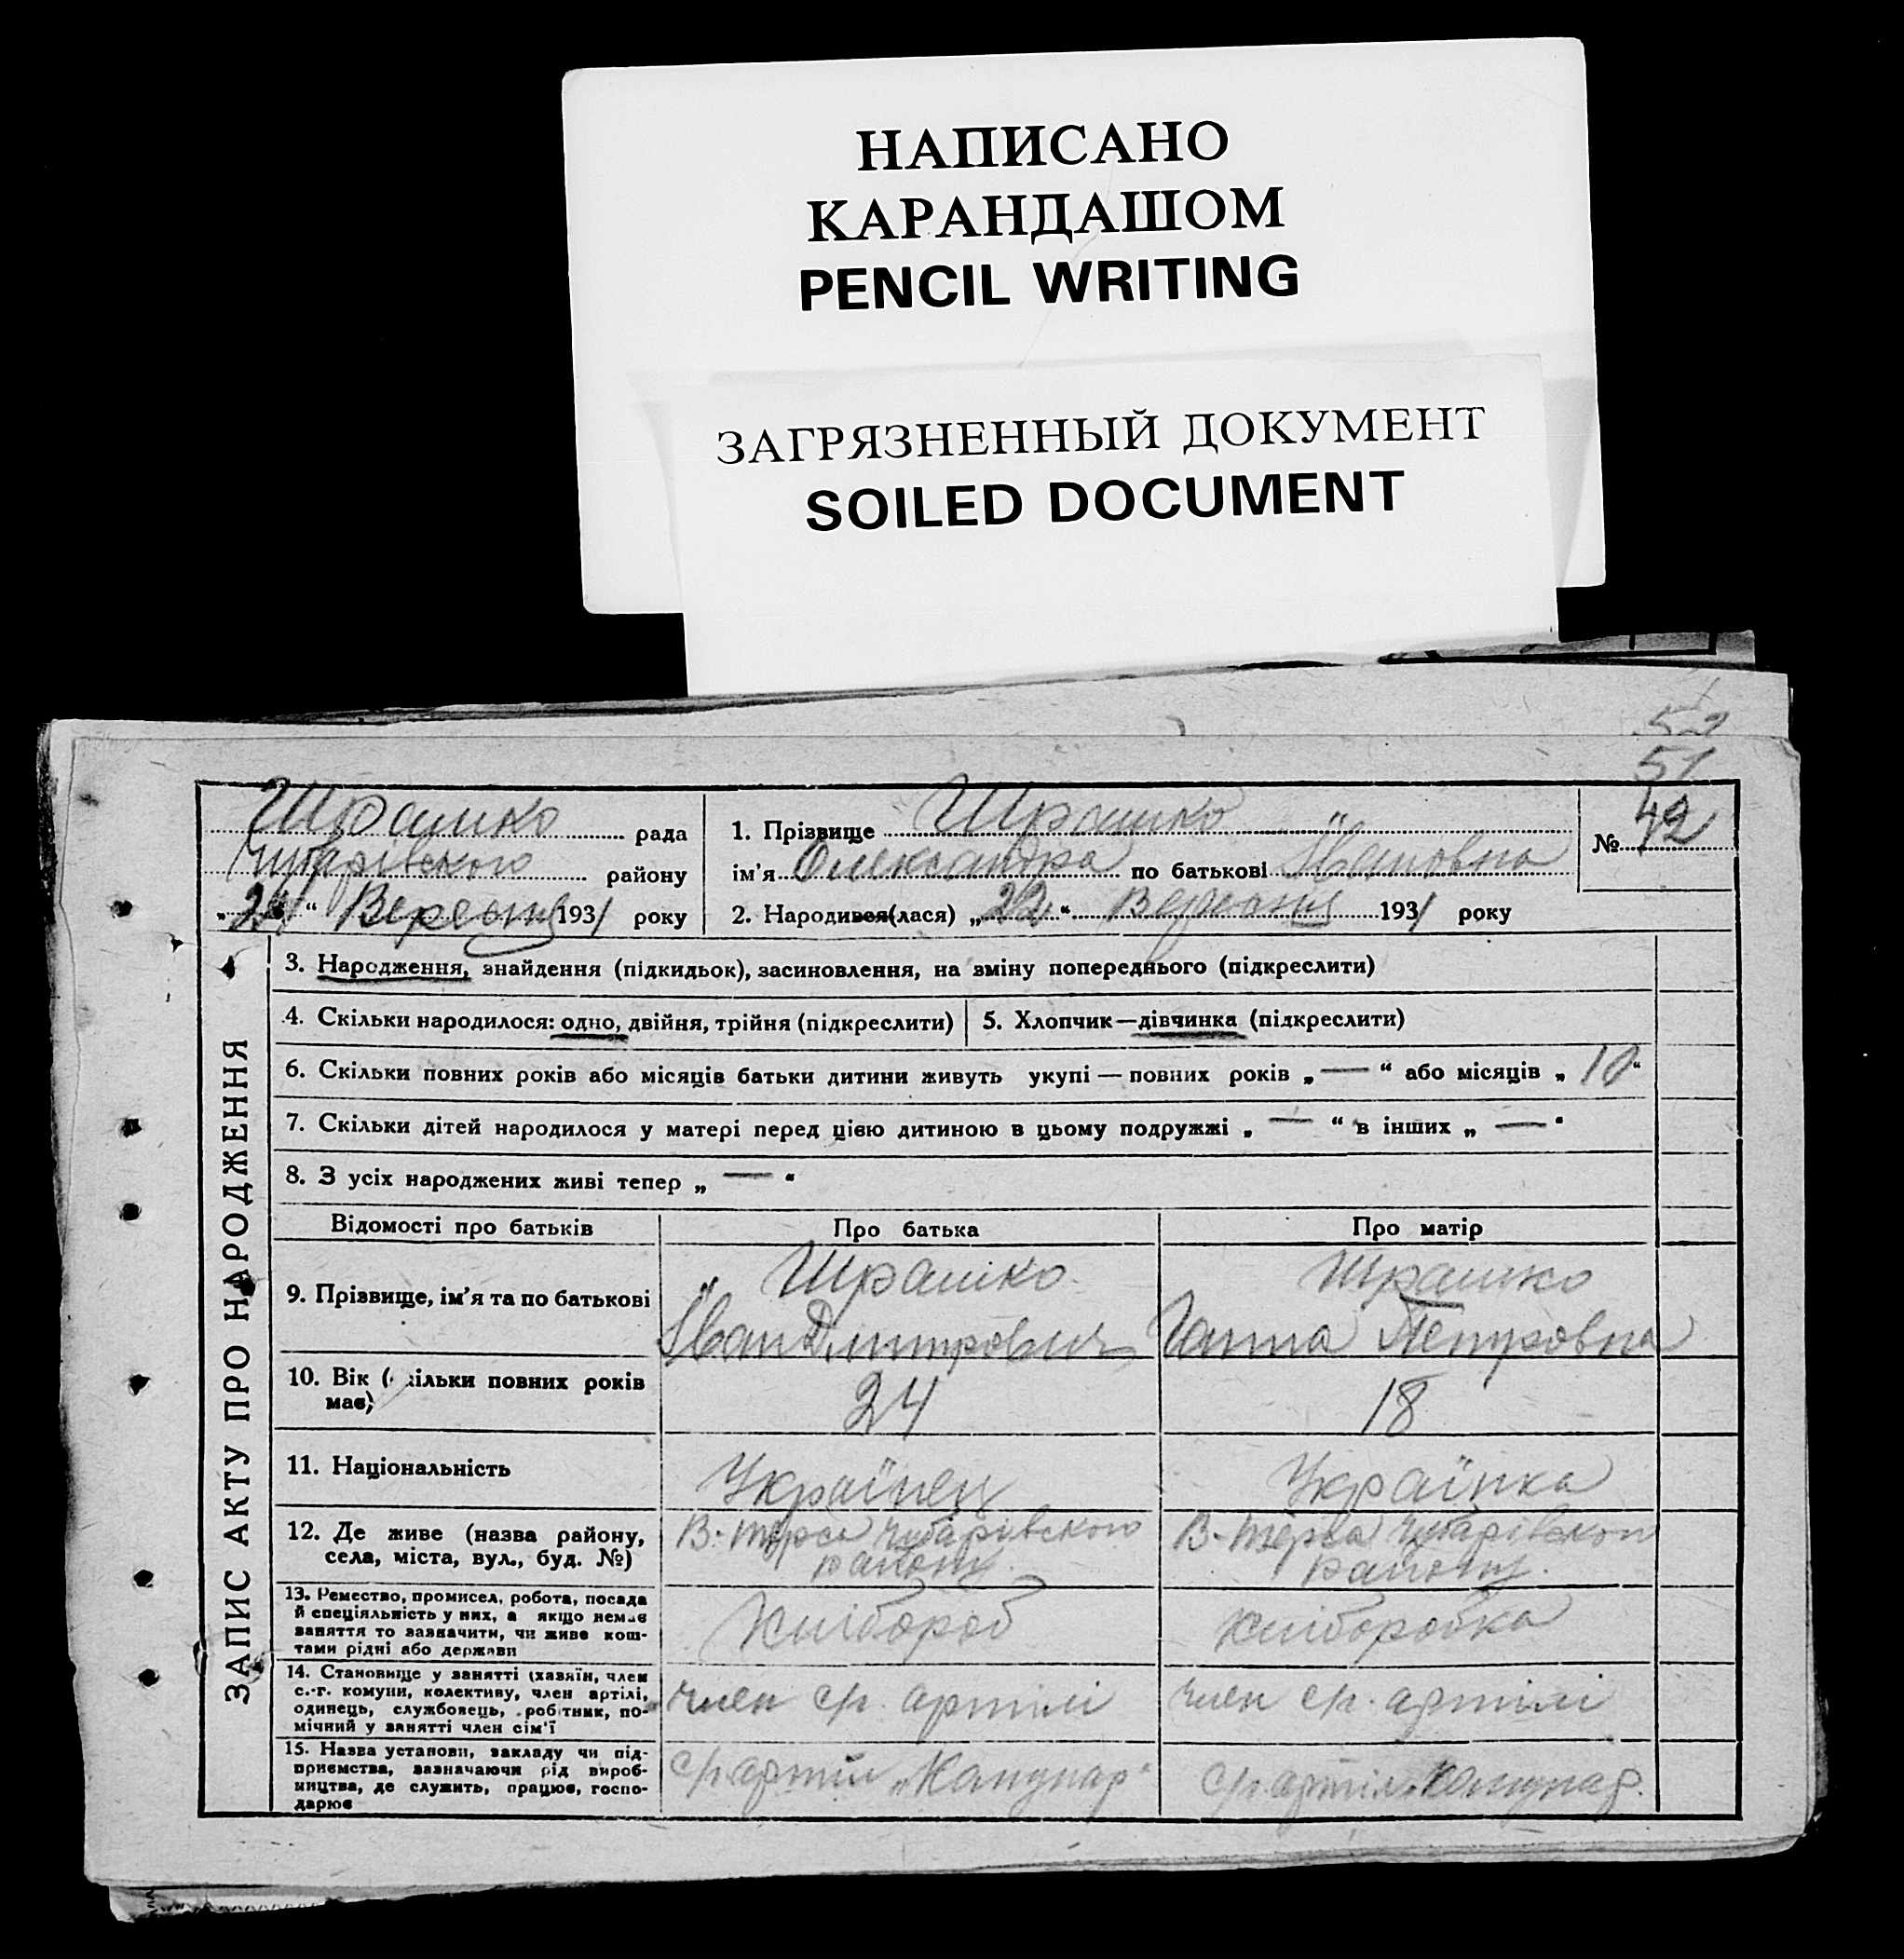 НАПИСАНО
КАРАНДАШОМ
PENCIL WRITING
ЗАГРЯЗНЕННЫЙ ДОКУМЕНТ
SOILED DOCUMENT
52
51
рада
Чубарівського району
„24“ Вересня 1931 року
1. Прізвище
ім'я Олександра по батькові Івановна
2. Народився(лася) „22“ Вересня 1931 року
№ 42
ЗАПИС АКТУ ПРО НАРОДЖЕННЯ
3. Народження, знайдення (підкидьок), засиновлення, на зміну попереднього (підкреслити)
4. Скільки народилося: одно, двійня, трійня (підкреслити)
5. Хлопчик—дівчинка (підкреслити)
6. Скільки повних років або місяців батьки дитини живуть укупі — повних років „—“ або місяців „10“
7. Скільки дітей народилося у матері перед цією дитиною в цьому подружжі „—“ в інших „—“
8. З усіх народжених живі тепер „—“
Відомості про батьків
Про батька
Про матір
9. Прізвище, ім'я та по батькові
Іван Дмитрович
Ганна Петровна
10. Вік (скільки повних років
має)
24
18
11. Національність
Українец
Українка
12. Де живе (назва району,
села, міста, вул., буд. №)
В-Терса Чубарівского
району.
В-Терса Чубарівского
району.
13. Ремество, промисел, робота, посада
й спеціяльність у них, а якщо немає
заняття то зазначити, чи живе кош-
тами рідні або держави
Хлібороб
Хліборобка
14. Становище у занятті (хазяїн, член
с.-г. комуни, колективу, член артілі,
одинець, службовець, робітник, по-
мічний у занятті член сім'ї
член с/г. артілі
член с/г. артілі
15. Назва установи, закладу чи під-
приємства, зазначаючи рід вироб-
ництва, де служить, працює, госпо-
дарює
с/г. артіл
с/г. артіл